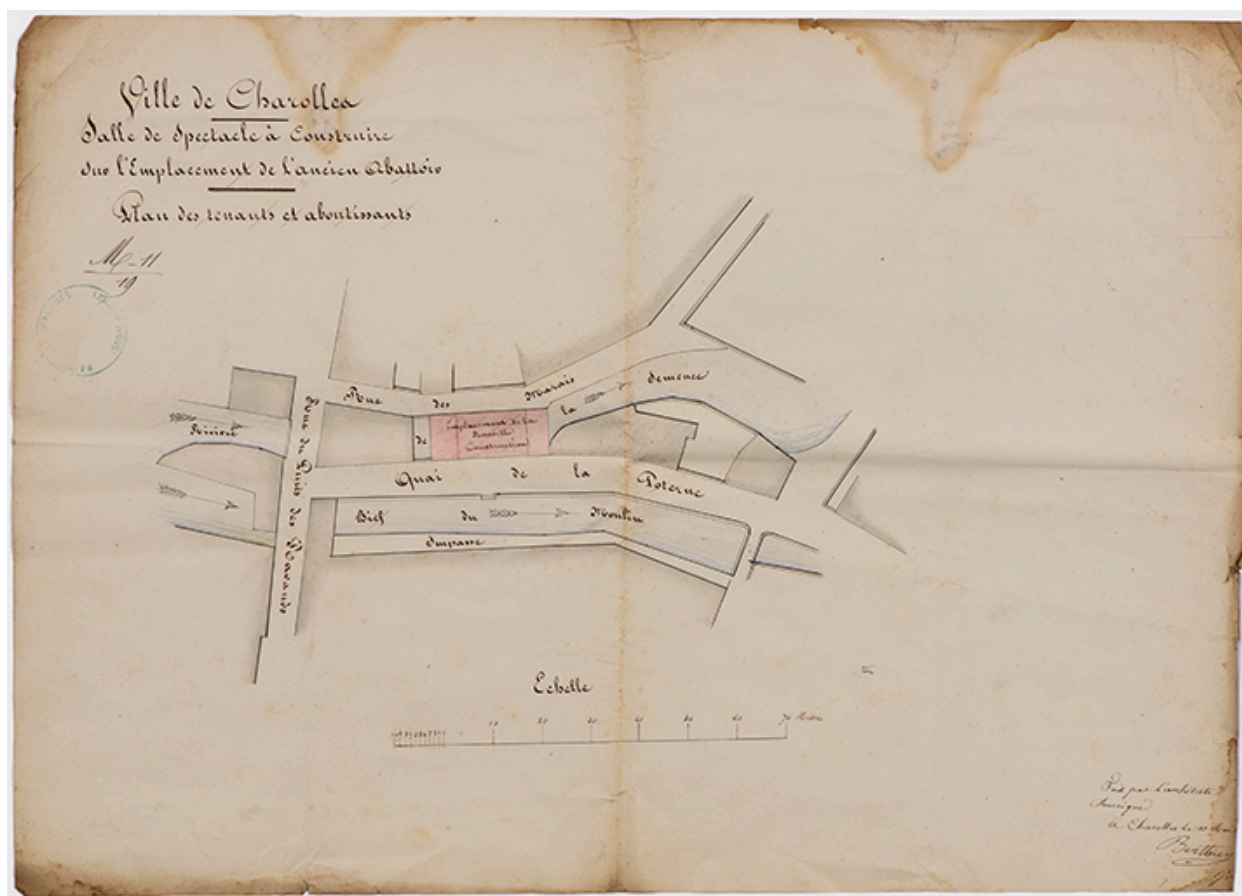 Ville de Charolles
Salle de Spectacle à Construire
sur l'Emplacement de l'ancien Abattoir
Plan des tenants et aboutissants
M-11
19
Rue des Marais
la Semence
Rivière
de
Emplacement de la
Nouvelle
Construction
Rue du Puits des Ravauds
Quai de la Poterne
Bief du Moulin
Impasse
Echelle
10 20 30 40 50 60 70 Mètres
Fait par l'architecte
Soussigné
à Charolles le